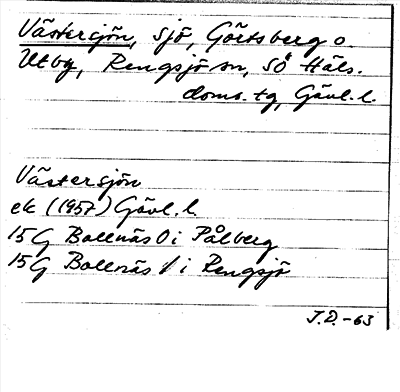 Västersjön, sjö, Görtsberg o.
Utby, Rengsjö sn, SÖ Häls.
doms.tg, Gävl.l.
Västersjön
ek (1957) Gävl.l.
15G Bollnäs O i Pålberg
15G Bollnäs i Rengsjö
J.D.-63